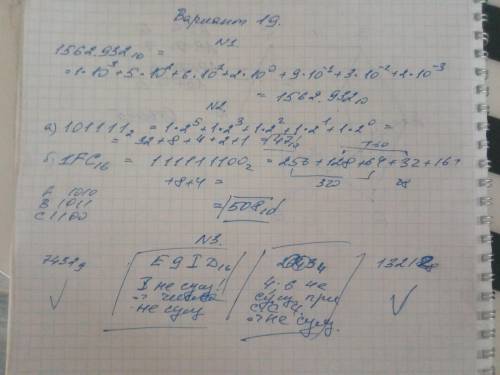 Вариант 19.
N1.
1562.932₁₀ =
= 1·10³ + 5·10² + 6·10¹ + 2·10⁰ + 9·10⁻¹ + 3·10⁻² + 2·10⁻³
= 1562.932₁₀
N2.
а) 101111₂ = 1·2⁵ + 1·2³ + 1·2² + 1·2¹ + 1·2⁰ =
= 32 + 8 + 4 + 2 + 1 = 47₁₀
б) 1FC₁₆ = 111111100₂ = 256 + 128 + 64 + 32 + 16 +
+ 8 + 4 =
320 28
= 508₁₀
A 1010
B 1011
C 1100
N3.
E9ID₁₆
I не сущ.
не сущ
4 6 не
сущ при
не сущ.